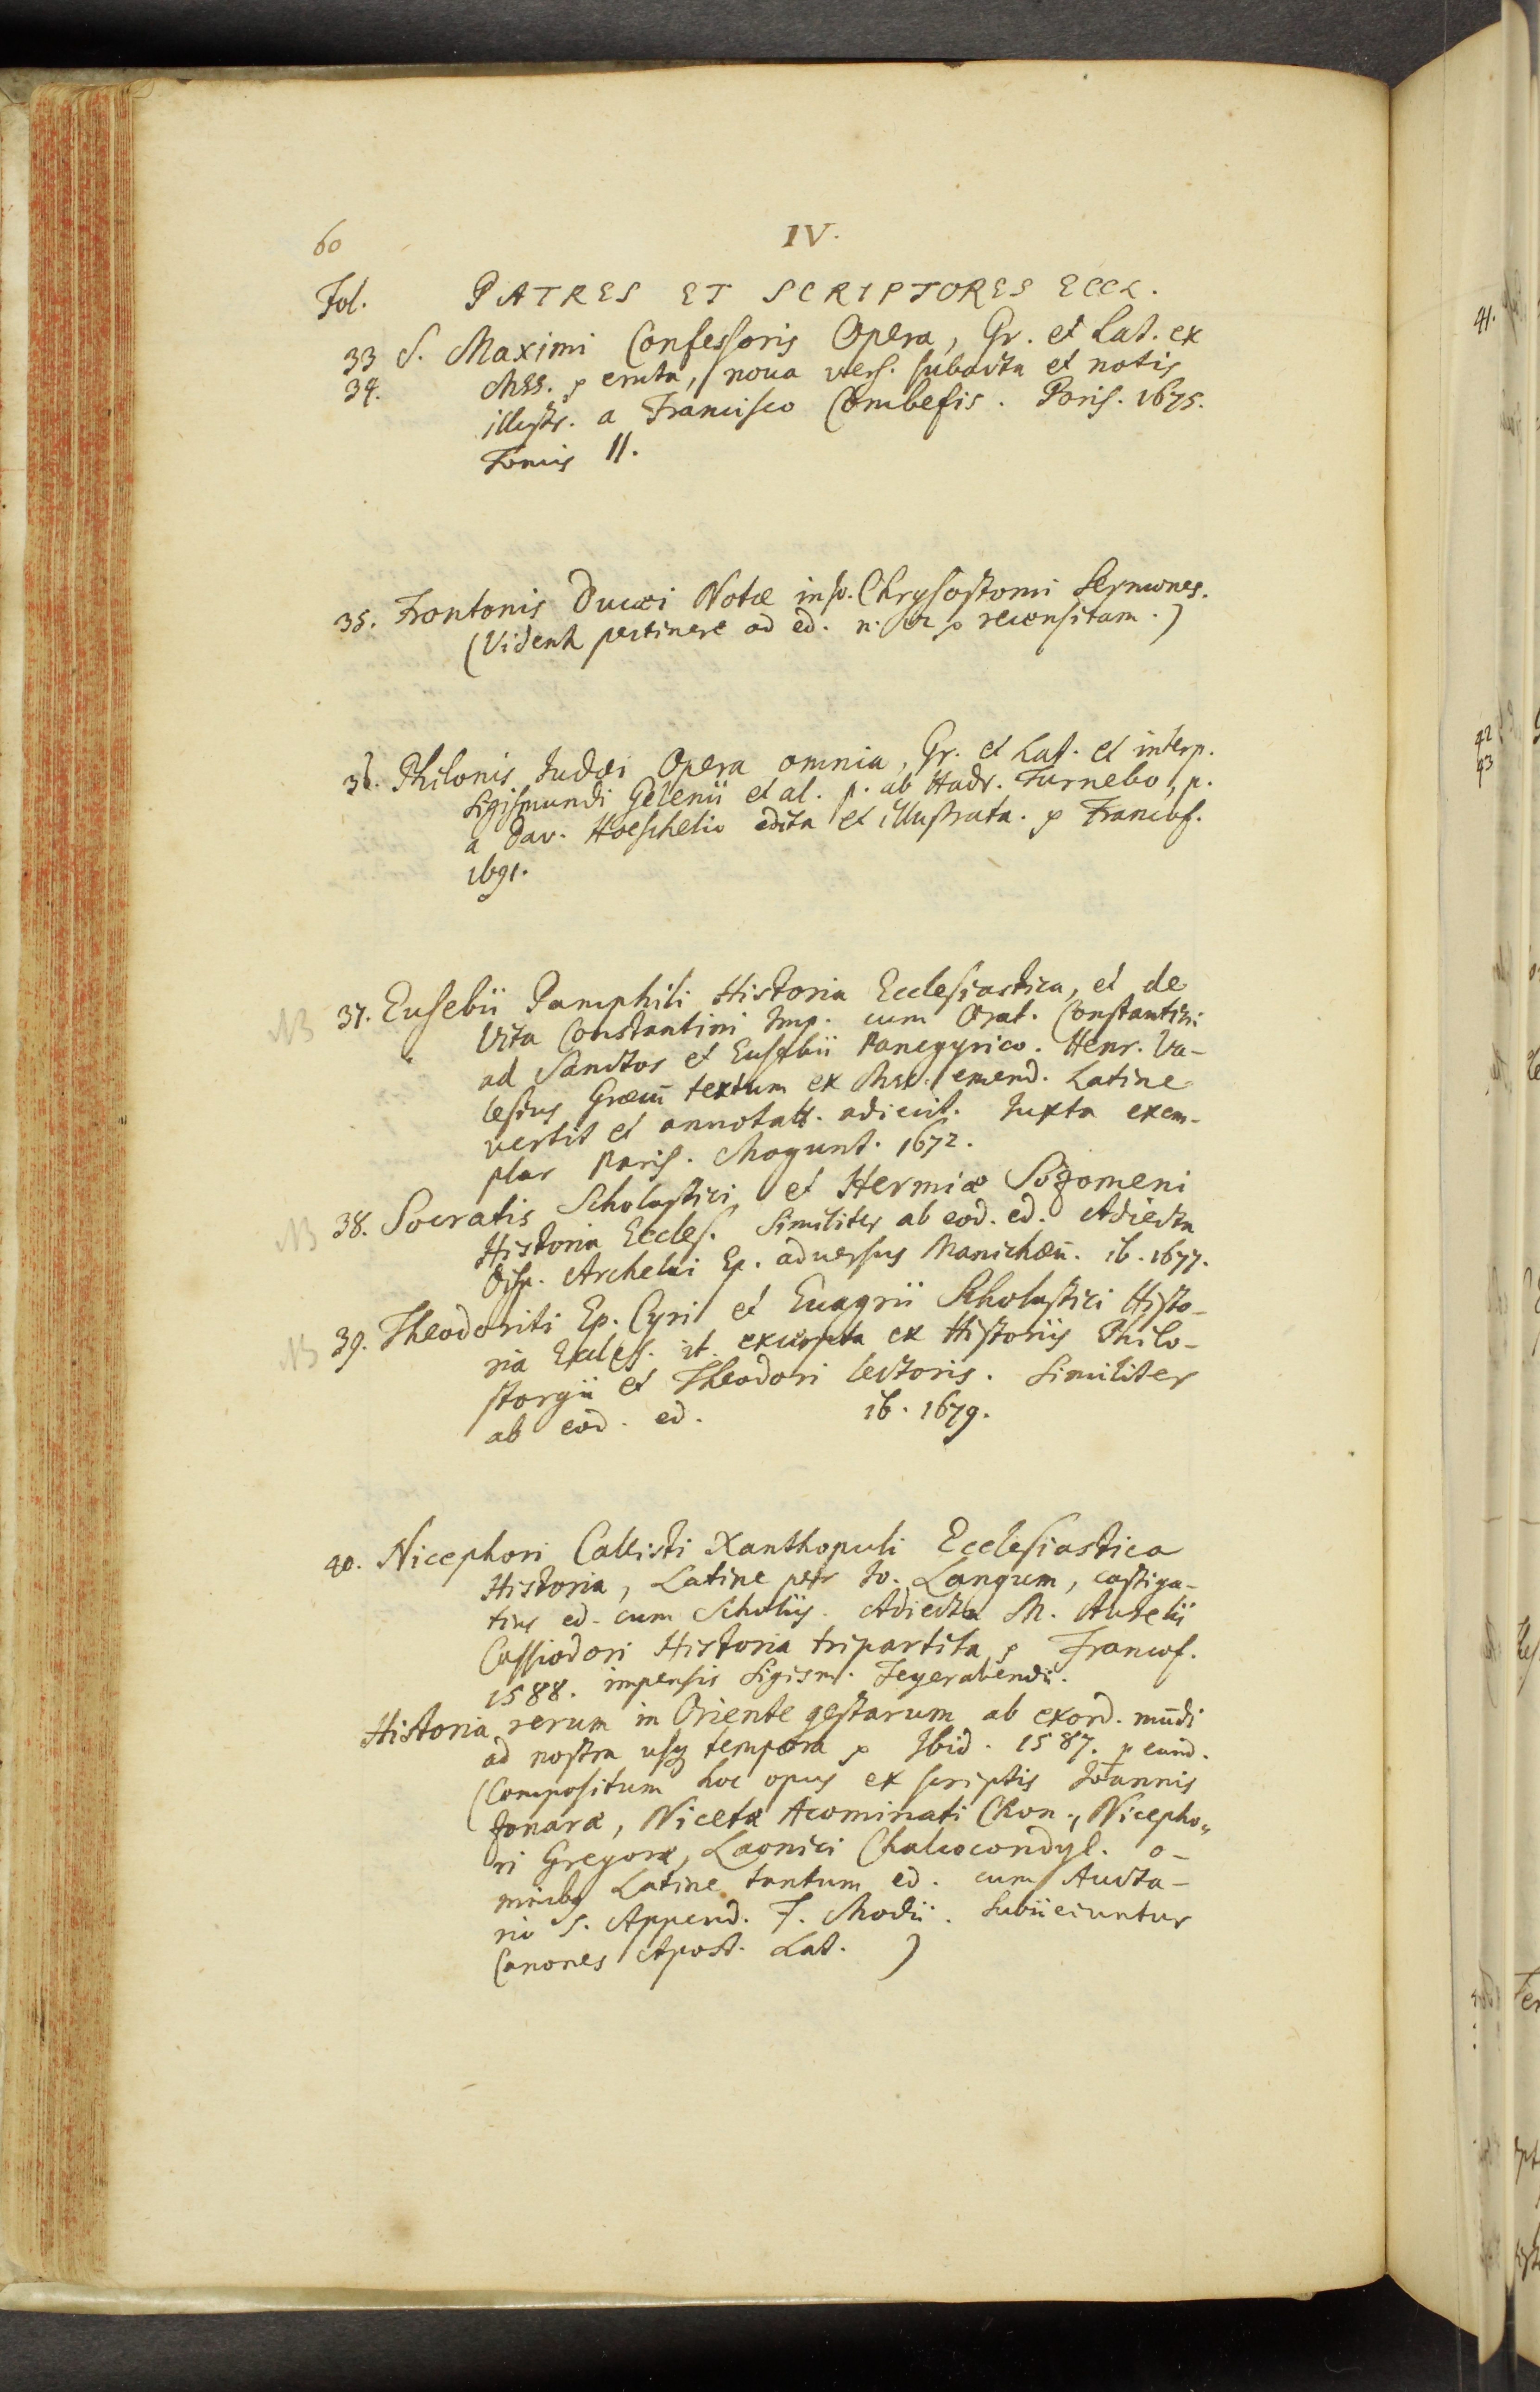 60
IV.
Fol. PATRES ET SCRIPTORES ECCL.
33 S. Maximi Confessoris Opera, Gr. et Lat. ex
34. Mss. eruta, noua vers. subacta et notis
illustr. a Francisco Combefis. Paris. 1675.
Tomis II.
35. Frontonis Ducæi Notæ in Chrysostomi Sermones.
(Videntr pertinere ad ed. n. recensitam.)
36. Philonis Judæi Opera omnia, Gr. et Lat. et interp.
Sigismundi Gelenii et al. p. ab Hadr. Turnebo, p.
a Dav. Hoeschelio edita et illustrata. Francof.
1691.
NB 37. Eusebii Pamphili Historia Ecclesiastica, et de
Vita Constantini Imp. cum Orat. Constantini
ad Sanctos et Eusebii Panegyrico. Henr. Va-
lesius Græcū textum ex Mss. emend. Latine
vertit et annotatt. adiecit. Juxta exem-
plar Paris. Mogunt. 1672.
NB 38. Socratis Scholastici et Hermiæ Sozomeni
Historia Eccles. Similiter ab eod. ed. Adiecta
Disp. Archelai Ep. aduersus Manichæū. ib. 1677.
NB 39. Theodoriti Ep. Cyri et Euagrii Scholastici Histo-
ria Eccless. it. excerpta ex Historiis Philo-
storgii et Theodori lectoris. Similiter
ab eod. ed. ib. 1679.
40. Nicephori Callisti Xanthopuli Ecclesiastica
Historia, Latine per Jo. Langum, castiga-
tius ed. cum Scholiis. Adiecta M. Aurelii
Cassiodori Historia tripartita Francof.
1588. impensis Sigism. Feyerabendii.
Historia rerum in Oriente gestarum ab exord. mūdi
ad nostra usq tempora Ibid. 1587. p eund.
(Compositum hoc opus ex scriptis Joannis
Zonaræ, Nicetæ Acominati Chon., Nicepho„
ri Gregoræ, Laonici Chalcocondyl. o-
mnibq Latine tantum ed. cum Aucta-
rio s. Append. F. Modii. Subiiciuntur
Canones Apost. Lat. )
41.
42
43